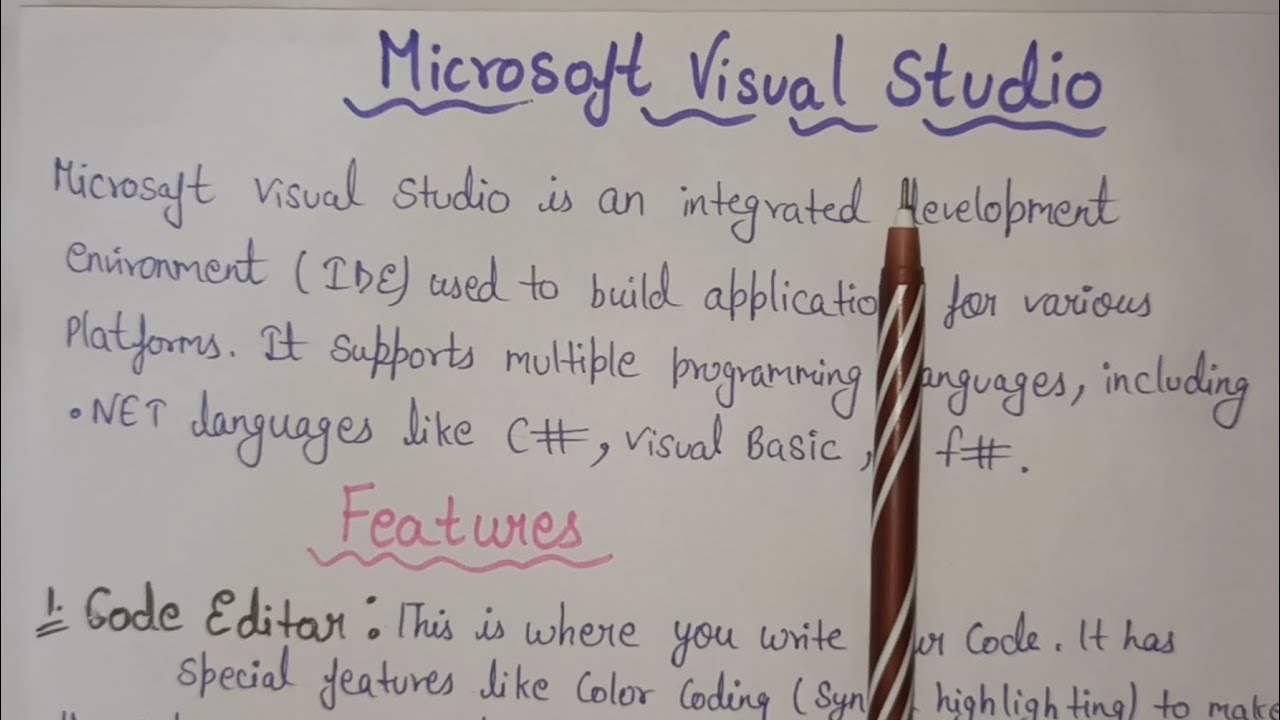 Microsoft Visual Studio
Microsoft Visual Studio is an integrated development
environment (IDE) used to build application for various
Platforms. It supports multiple programming languages, including
.NET languages like C#, Visual Basic, f#.
Features
1. Code Editor: This is where you write your Code. It has
special features like Color Coding (Syntax highlighting) to make